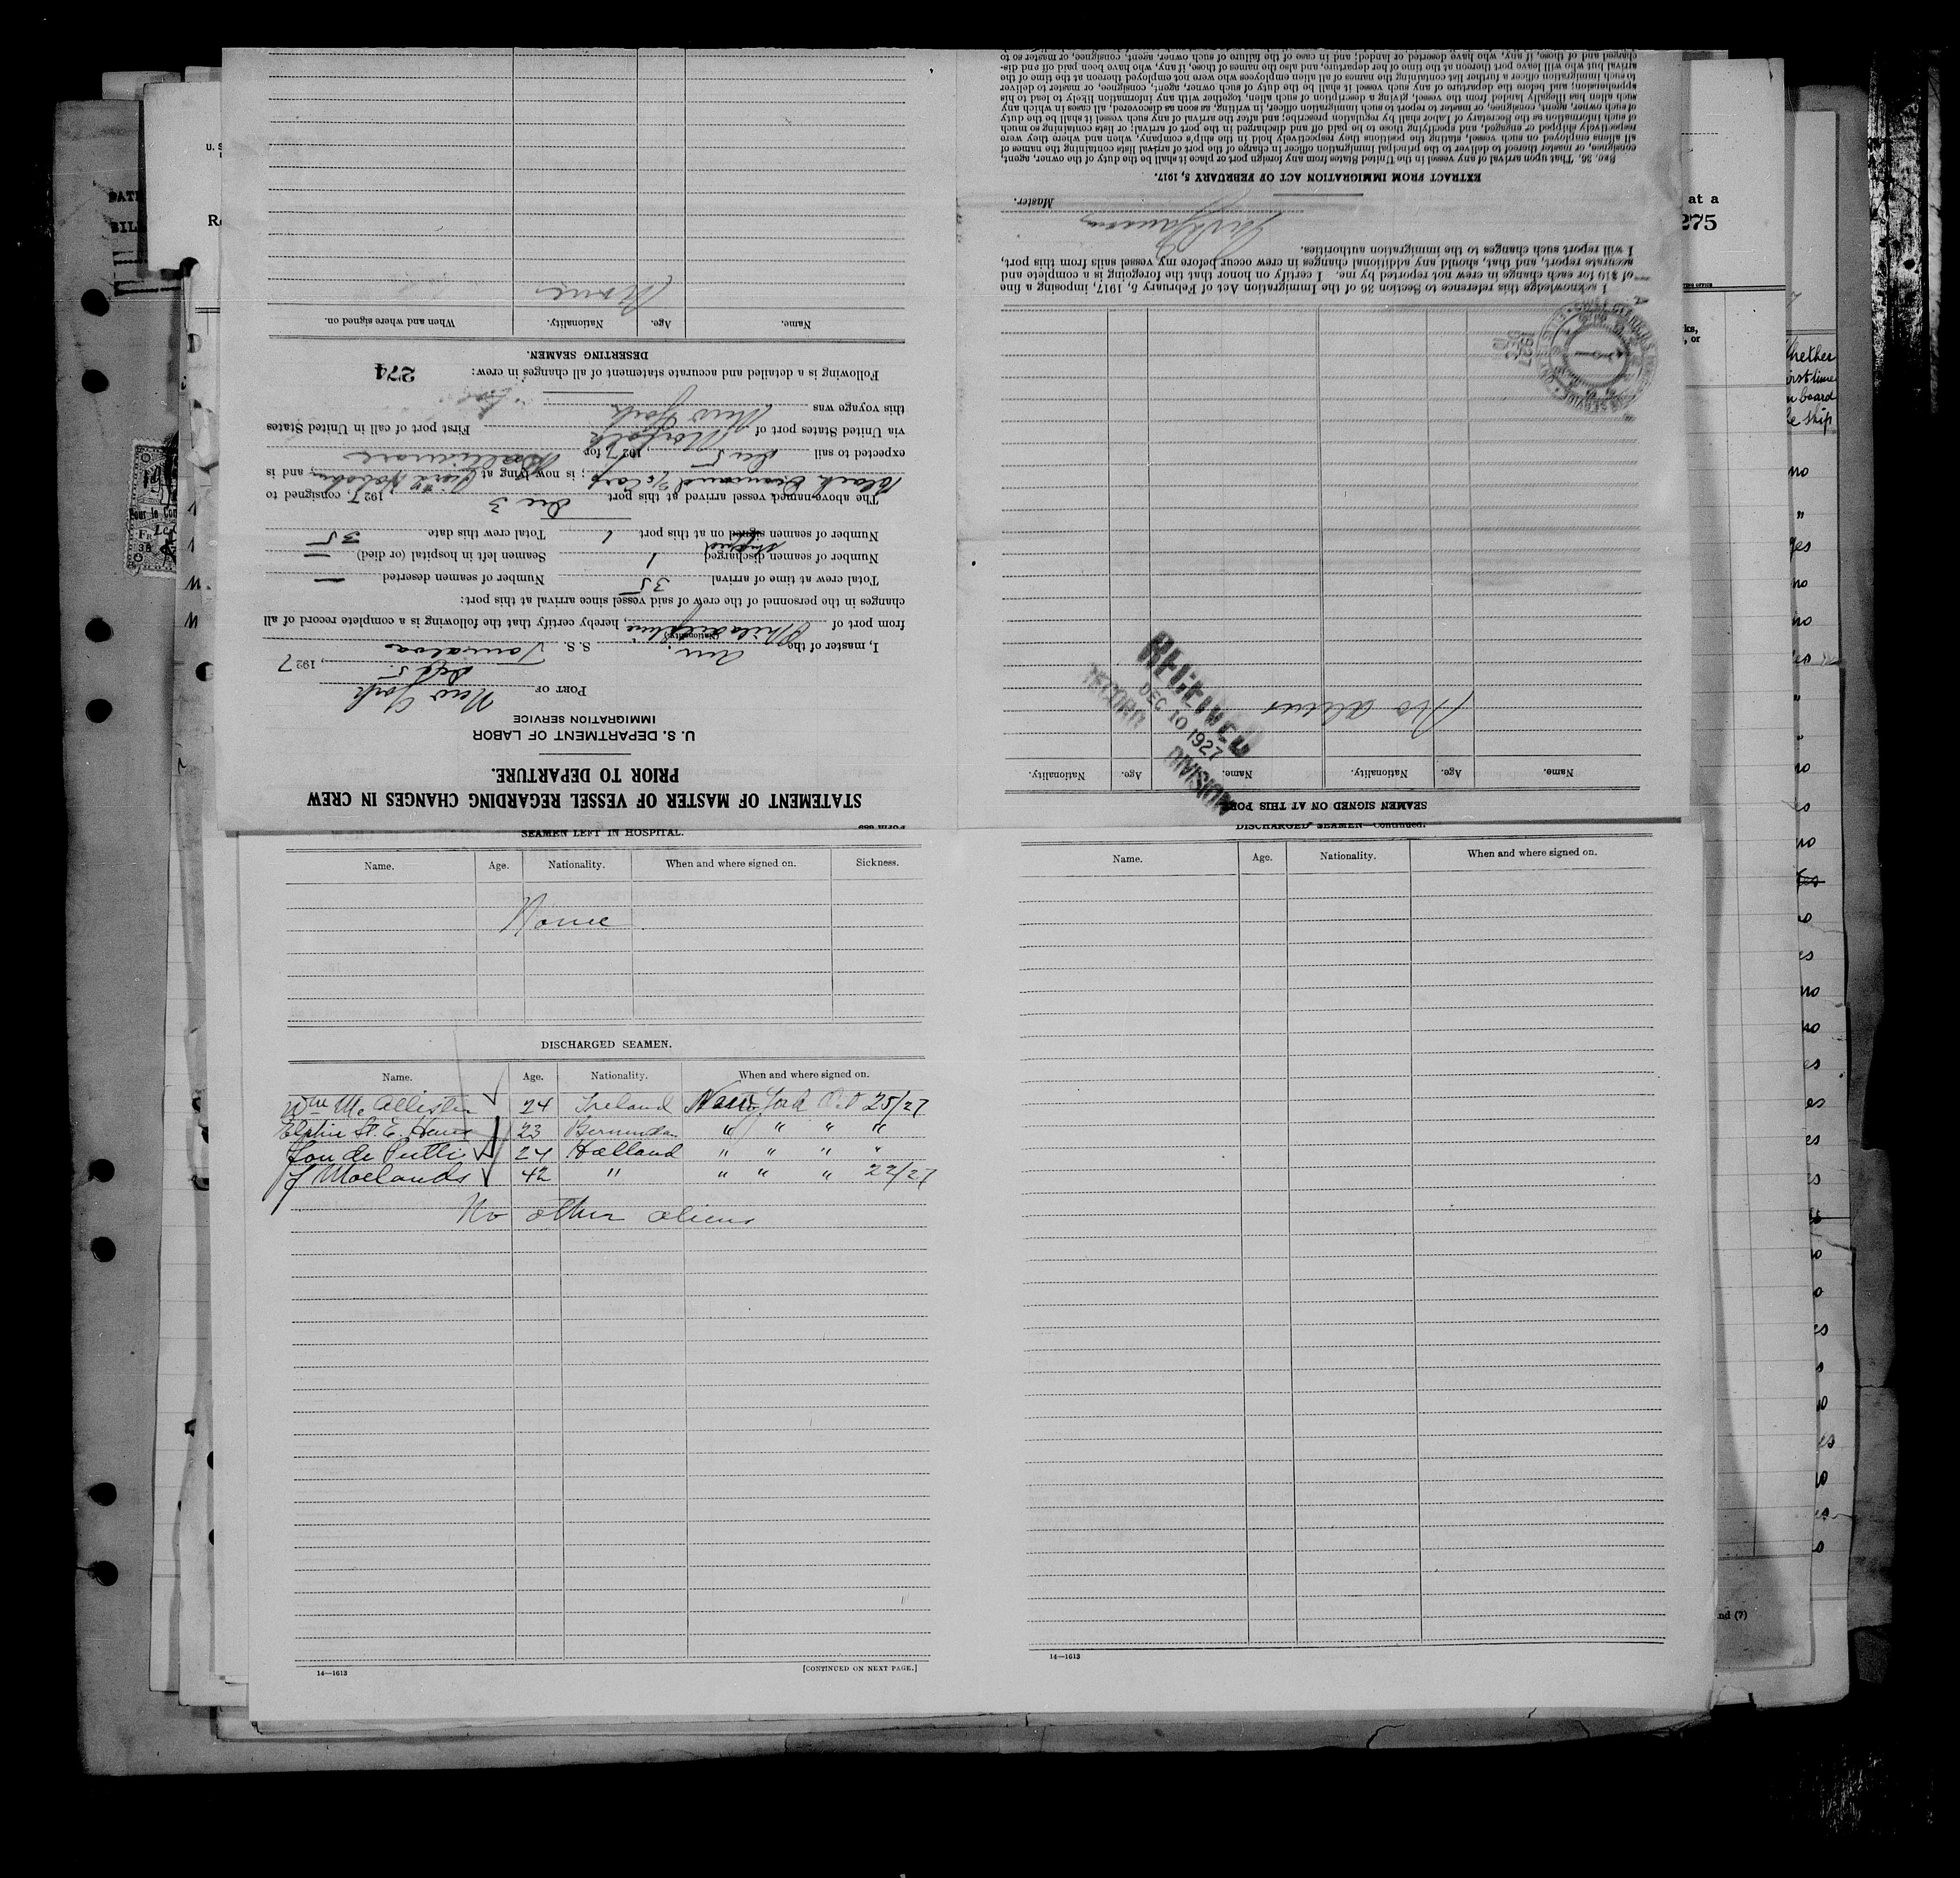 STATEMENT OF MASTER OF VESSEL REGARDING CHANGES IN CREW
PRIOR TO DEPARTURE.
U. S. DEPARTMENT OF LABOR
IMMIGRATION SERVICE
PORT OF New York
, 1927
I, master of the Am. S. S.
(Nationality)
from port of Philadelphia, hereby certify that the following is a complete record of all
changes in the personnel of the crew of said vessel since arrival at this port:
Total crew at time of arrival 35 Number of seamen deserted —
Number of seamen discharged 1 Seamen left in hospital (or died) —
Number of seamen signed on at this port 1 Total crew this date 35
The above-named vessel arrived at this port Dec 3 1927, consigned to
Black Diamond S/S Corp; is now lying at Hoboken, and is
expected to sail Dec 5, 1927 for Baltimore
via United States port of Norfolk First port of call in United States
this voyage was New York
Following is a detailed and accurate statement of all changes in crew: 274
DESERTING SEAMEN.
Name. Age. Nationality. When and where signed on.
None
SEAMEN SIGNED ON AT THIS PORT
Name. Age. Nationality. Name. Age. Nationality.
No aliens
RECEIVED
DEC 10 1927
RECORD DIVISION
I acknowledge this reference to Section 36 of the Immigration Act of February 5, 1917, imposing a fine
of $10 for each change in crew not reported by me. I certify on honor that the foregoing is a complete and
accurate report, and that, should any additional changes in crew occur before my vessel sails from this port,
I will report such changes to the immigration authorities.
Master.
EXTRACT FROM IMMIGRATION ACT OF FEBRUARY 5, 1917.
SEC. 36. That upon arrival of any vessel in the United States from any foreign port or place it shall be the duty of the owner, agent,
consignee, or master thereof to deliver to the principal immigration officer in charge of the port of arrival lists containing the names of
all aliens employed on such vessel, stating the positions they respectively hold in the ship's company, when and where they were
respectively shipped or engaged, and specifying those to be paid off and discharged in the port of arrival; or lists containing so much
of such information as the Secretary of Labor shall by regulation prescribe; and after the arrival of any such vessel it shall be the duty
of such owner, agent, consignee, or master to report to such immigration officer, in writing, as soon as discovered, all cases in which any
such alien has illegally landed from the vessel, giving a description of such alien, together with any information likely to lead to his
apprehension; and before the departure of any such vessel it shall be the duty of such owner, agent, consignee, or master to deliver
to such immigration officer a further list containing the names of all alien employees who were not employed thereon at the time of the
arrival but who will leave port thereon at the time of her departure, and also the names of those, if any, who have been paid off and dis-
charged and of those, if any, who have deserted or landed; and in case of the failure of such owner, agent, consignee, or master so to
SEAMEN LEFT IN HOSPITAL.
Name. Age. Nationality. When and where signed on. Sickness.
None
DISCHARGED SEAMEN.
Name. Age. Nationality. When and where signed on.
Wm McAllister 24 Ireland New York Oct 25/27
Elphin St. E. 23 Bermudan " " " "
Lou de Putti 24 Holland " " " "
J Moelands 42 " " " " 22/27
No other aliens
14—1613 [CONTINUED ON NEXT PAGE.]
DISCHARGED SEAMEN—Continued.
Name. Age. Nationality. When and where signed on.
14—1613
at a
275
ks,
, or
Whether
first time
on board
the ship
nd (7)